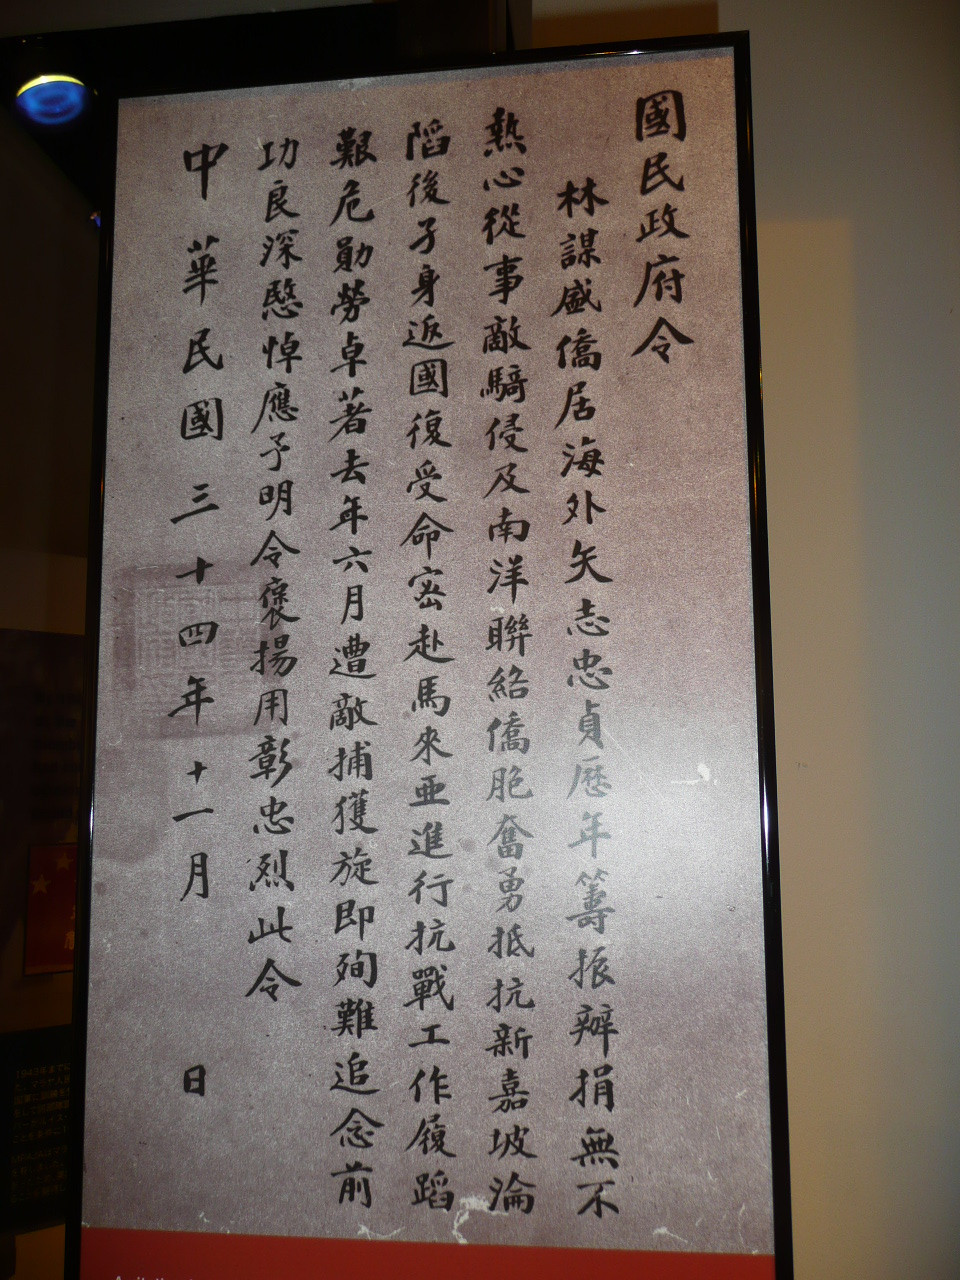 國民政府令
林謀盛僑居海外矢志忠貞歷年籌振辦捐無不
熱心從事敵騎侵及南洋聯絡僑胞奮勇抵抗新嘉坡淪
陷後孑身返國復受命密赴馬來亞進行抗戰工作履蹈
艱危勛勞卓著去年六月遭敵捕獲旋即殉難追念前
功良深愍悼應予明令褒揚用彰忠烈此令
中華民國三十四年十一月 日